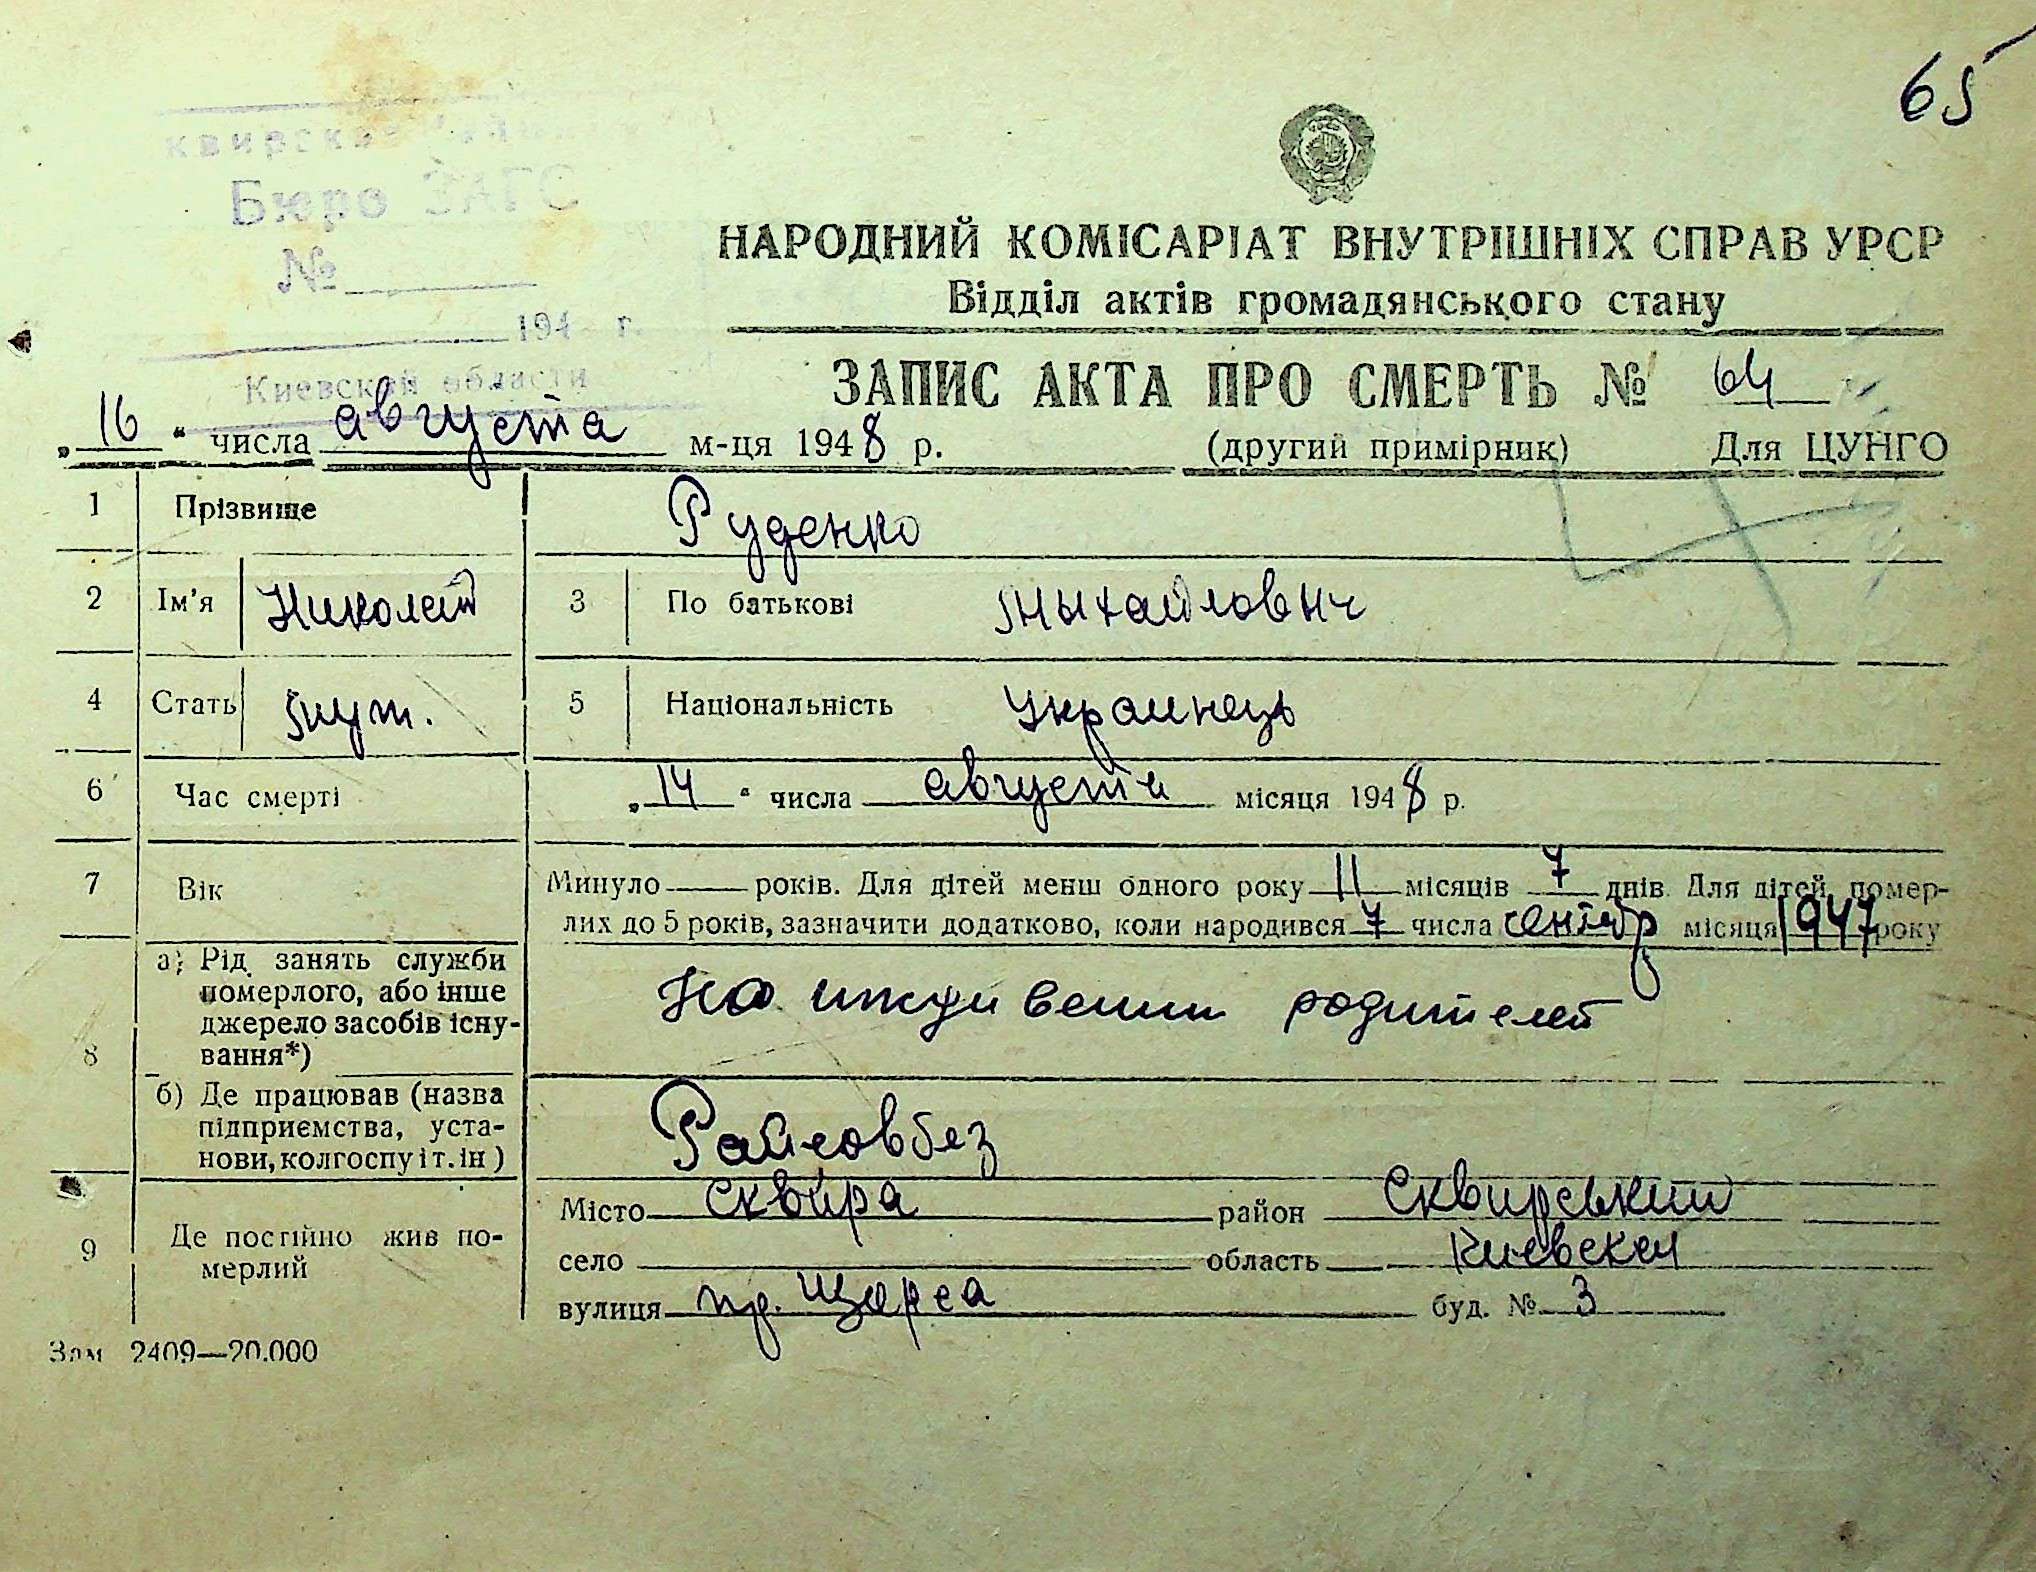 65
Бюро ЗАГС
№
194 г.
Киевской области
НАРОДНИЙ КОМІСАРІАТ ВНУТРІШНІХ СПРАВ УРСР
Відділ актів громадянського стану
ЗАПИС АКТА ПРО СМЕРТЬ № 64
„16“ числа августа м-ця 1948 р. (другий примірник) Для ЦУНГО
1 Прізвище Руденко
2 Ім'я Николай 3 По батькові Михайлович
4 Стать муж. 5 Національність Украинець
6 Час смерті „14“ числа августа місяця 1948 р.
7 Вік Минуло — років. Для дітей менш одного року 11 місяців 7 днів. Для дітей, помер-
лих до 5 років, зазначити додатково, коли народився 7 числа сентябр місяця 1947 року
8 а) Рід занять служби
померлого, або інше
джерело засобів існу-
вання*)
На иждивении родителей
б) Де працював (назва
підприємства, уста-
нови, колгоспу і т. ін)
Райсовбез
9 Де постійно жив по-
мерлий
Місто Сквира район Сквирський
село область Киевская
вулиця пр. Щорса буд. № 3
Зам 2409—20.000